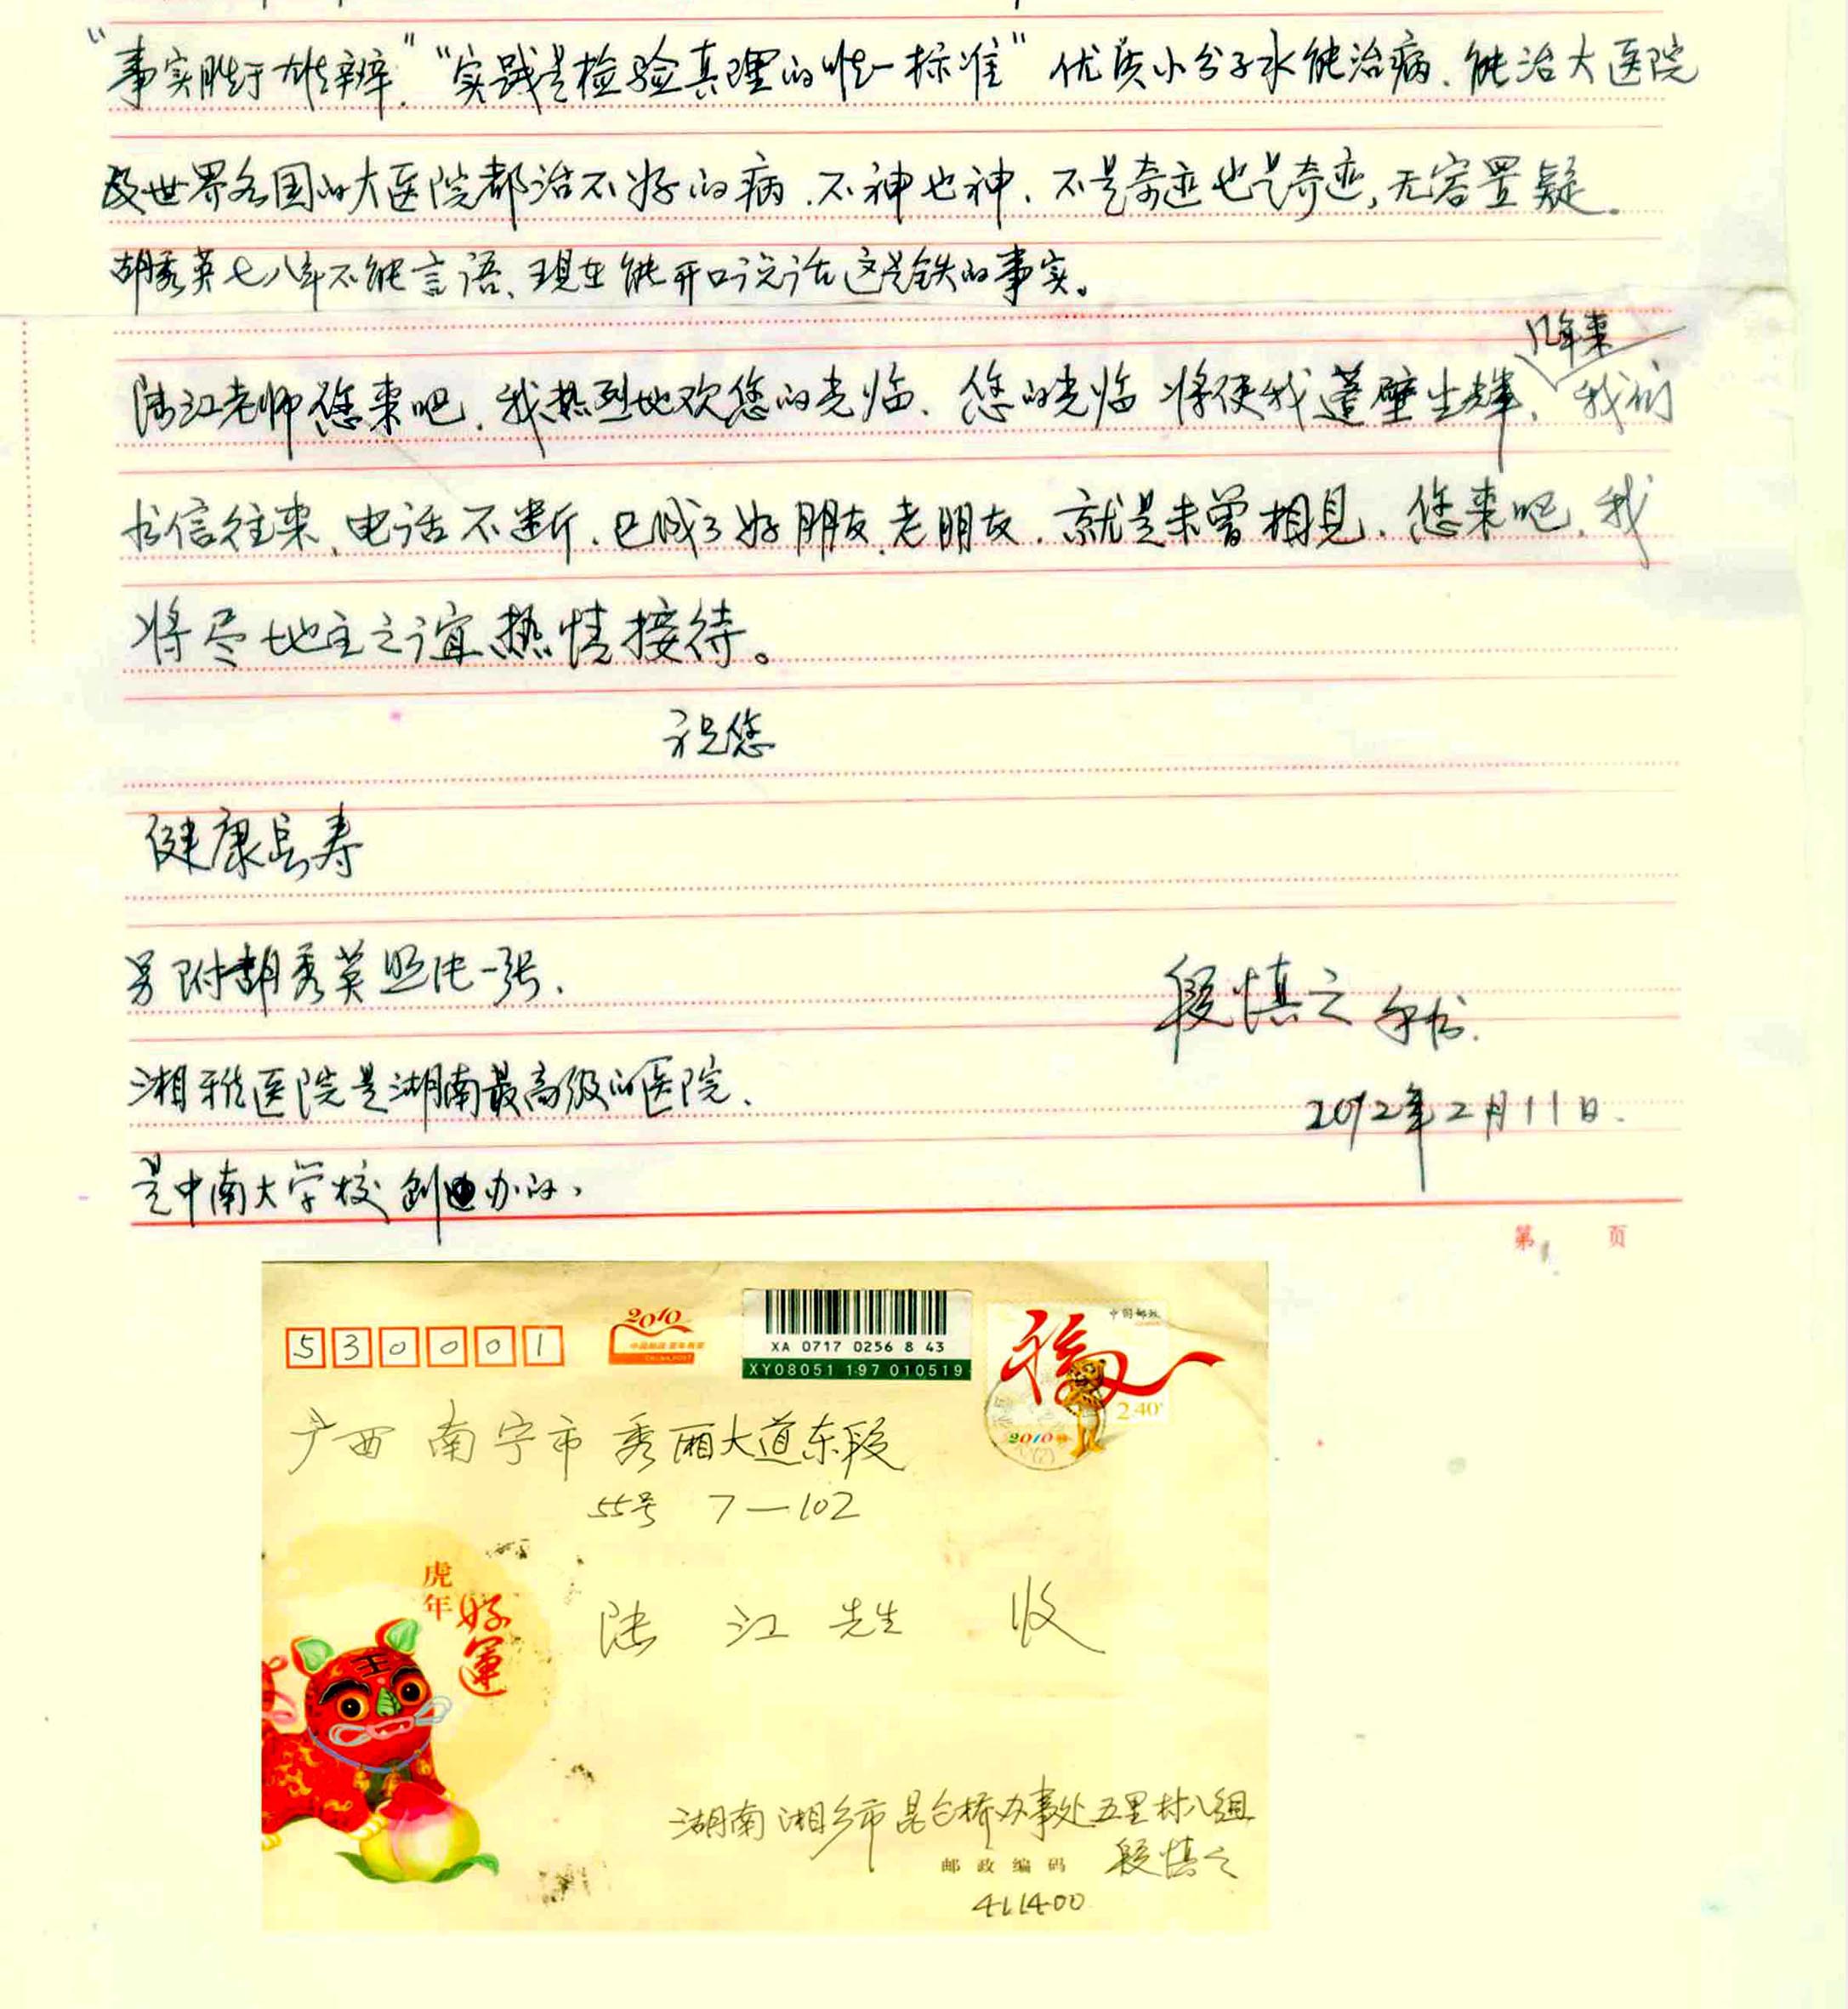 “事实胜于雄辩”“实践是检验真理的唯一标准”优质小分子水能治病、能治大医院
及世界各国的大医院都治不好的病、不神也神、不是奇迹也是奇迹，无容置疑.
胡秀英七八年不能言语、现在能开口说话这是铁的事实。
几年来
陆江老师您来吧、我热烈地欢您的光临、您的光临将使我蓬壁生辉、我们
书信往来、电话不断、已成了好朋友、老朋友、就是未曾相见、您来吧、我
将尽地主之谊热情接待。
祝您
健康长寿
另附胡秀英照片一张、
段慎之 手书.
湘雅医院是湖南最高级的医院、
2012年2月11日.
是中南大学校创办的、
第 页
530001
2010
CHINA POST
XA 0717 0256 8 43
XY08051 197 010519
福
中国邮政
2.40
2010
广西 南宁市 秀厢大道东段
55号 7—102
虎年
好運
王
陆 江 先生 收
湖南湘乡市昆仑桥办事处五里村八组
邮政编码 段慎之
411400